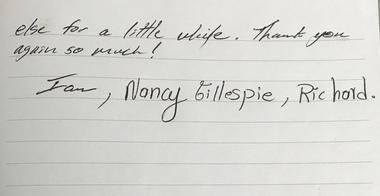 else for a little while. Thank you
again so much!
Ian, Nancy Gillespie, Richard.